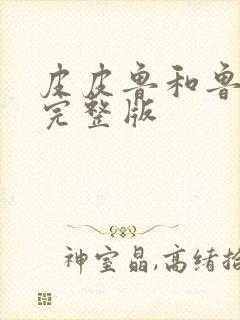 皮皮鲁和鲁
完整版
神室晶,高绪拾